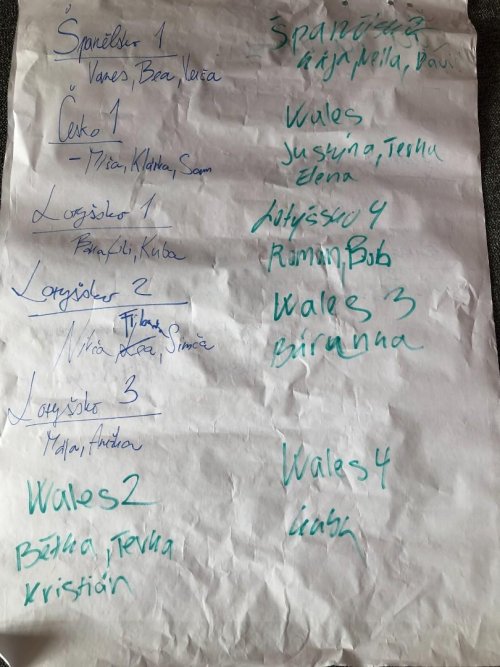 Španělsko 1
Vanes, Bea, Verča
Česko 1
- Míša, Klárka, Sam
Lotyšsko 1
Bára, Lili, Kuba
Lotyšsko 2
Nikča, Simča
Lotyšsko 3
Anežka
Wales 2
Bětka, Terka
Kristián
Španělsko 2
Nella, David
Wales
Justýna, Terka
Elena
Lotyšsko 4
Roman, Bob
Wales 3
Barunka
Wales 4